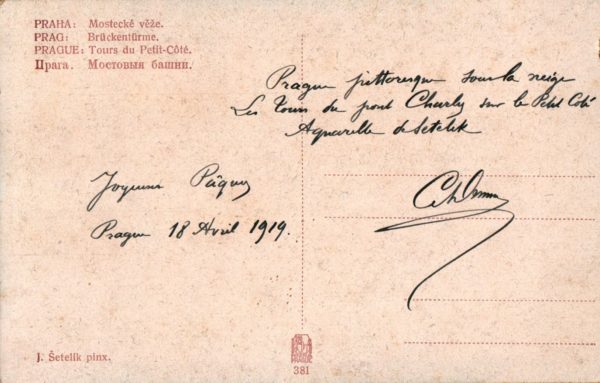 PRAHA: Mostecké věže.
PRAG: Brückentürme.
PRAGUE: Tours du Petit-Côté.
Прага. Мостовыя башни.
Prague pittoresque sous la neige
Les Tours du pont Charles sur le Petit Coté
Aquarelle de Setelik
Joyeuses Pâques
Prague 18 Avril 1919.
J. Šetelík pinx.
381